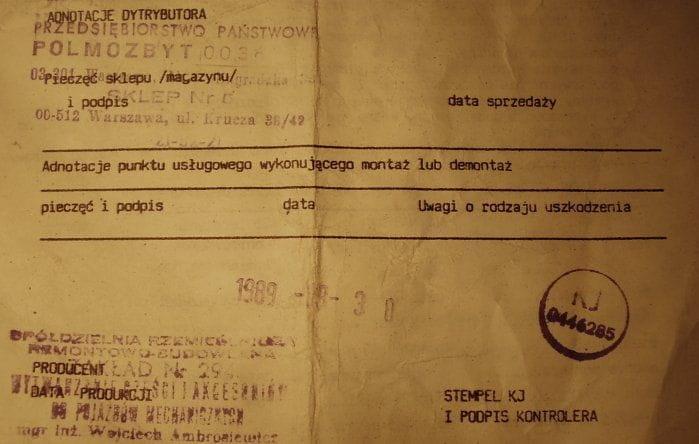 ADNOTACJE DYTRYBUTORA
PRZEDSIĘBIORSTWO PAŃSTWOWE
POLMOZBYT 0038
03-301
Pieczęć sklepu /magazynu/
SKLEP Nr 5
i podpis
data sprzedaży
00-512 Warszawa, ul. Krucza 38/42
Adnotacje punktu usługowego wykonującego montaż lub demontaż
pieczęć i podpis data Uwagi o rodzaju uszkodzenia
1989 30
KJ
0446285
SPÓŁDZIELNIA RZEMIEŚLNICZA
REMONTOWO-BUDOWLANA
PRODUCENT
ZAKŁAD Nr 29
DATA PRODUKCJI
WYTWARZANIE CZĘŚCI I AKCESORIÓW
DO POJAZDÓW MECHANICZNYCH
mgr inż. Wojciech Ambrosiewicz
STEMPEL KJ
I PODPIS KONTROLERA